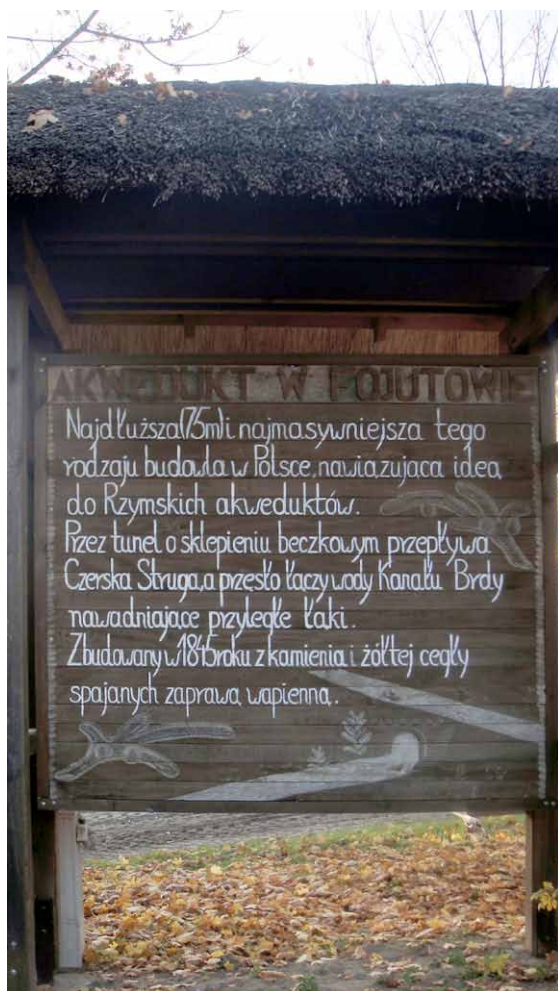 AKWEDUKT W FOJUTOWIE
Najdłuższa(75m)i najmasywniejsza tego
rodzaju budowla w Polsce, nawiązująca ideą
do Rzymskich akweduktów.
Przez tunel o sklepieniu beczkowym przepływa
Czerska Struga,a przęsło łączy wody Kanału Brdy
nawadniające przyległe łąki.
Zbudowany w 1845 roku z kamienia i żółtej cegły
spajanych zaprawą wapienną.